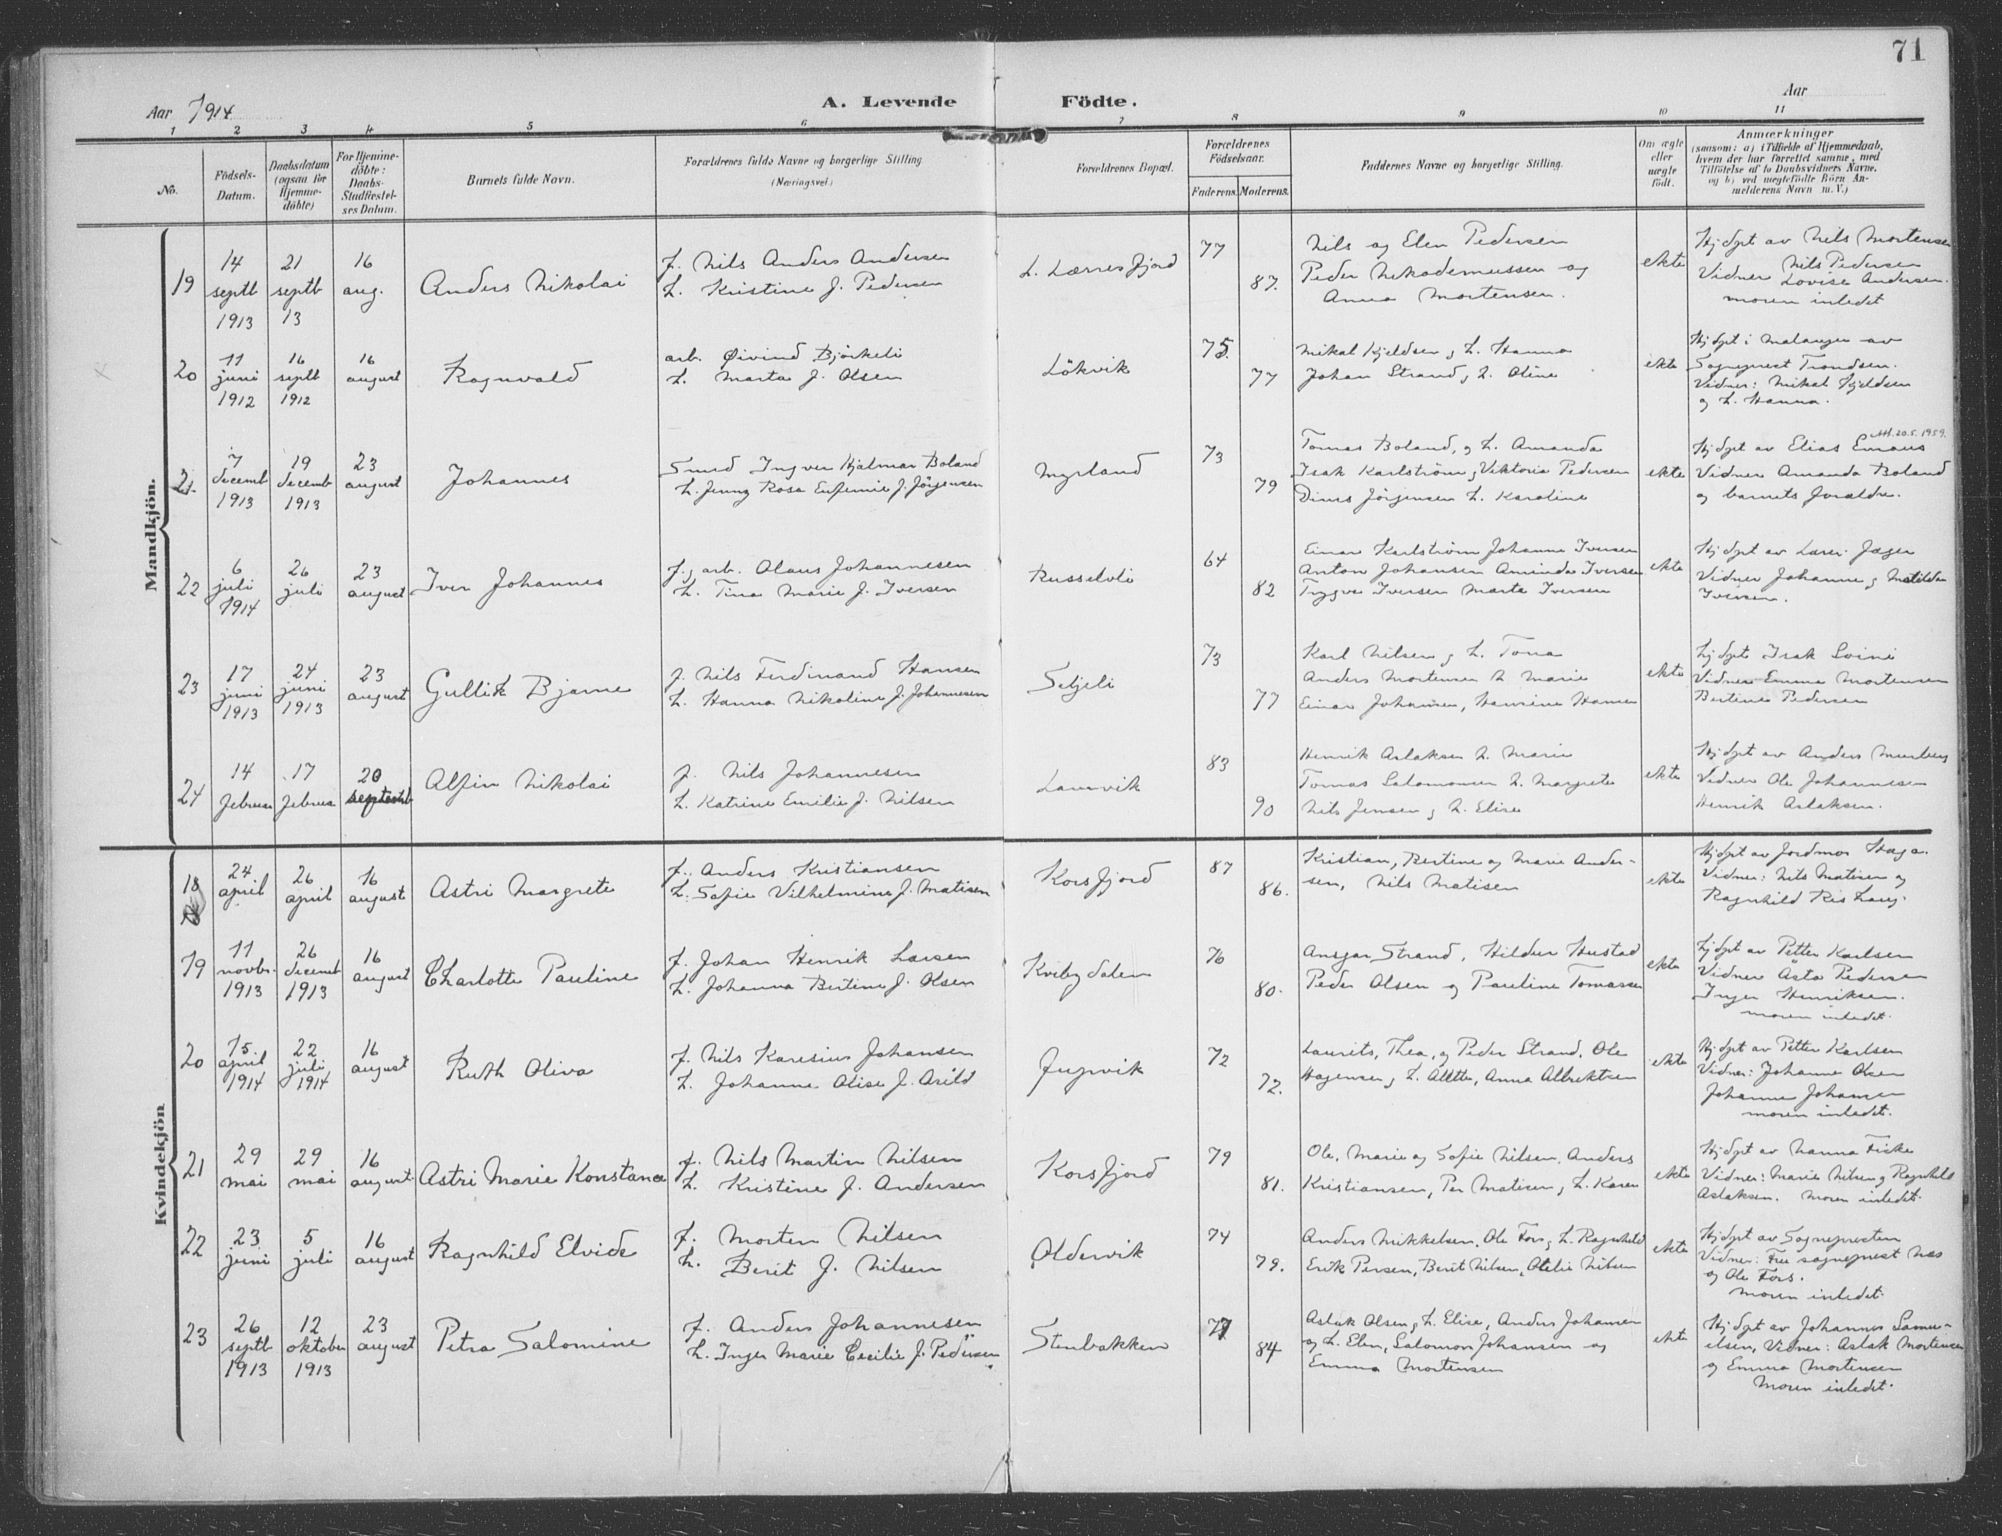 71
Aar 1914
A. Levende Födte.
Aar
1 2 3 4 5 6 7 8 9 10 11
No.
Födsels-Datum.
Daabsdatum (ogsaa for Hjemme-döbte)
For Hjemme-döbte: Daabs-Stadfæstel-ses Datum.
Barnets fulde Navn.
Forældrenes fulde Navne og borgerlige Stilling (Næringsvei.)
Forældrenes Bopæl.
Forældrenes Födselsaar.
Faderens. Moderens.
Faddernes Navne og borgerlige Stilling.
Om ægte eller uægte födt.
Anmærkninger
(saasom: a) i Tilfælde af Hjemmedaab,
hvem der har forrettet samme, med
Tilföielse af to Daabsvidners Navne,
og b) ved uægtefödte Börn An-
melderens Navn m. V.)
Mandkjön.
19
14 septb 1913
21 septb 13
16 aug.
Anders Nikolai
f. Nils Anders Andersen
h. Kristine f. Pedersen
L. Lerresfjord
77
87.
Nils og Elen Pedersen
Peder Nikodemussen og
Anna Mortensen.
ekte
Hjdpt av Nils Mortensen
Vidner Nils Pedersen
Lovise Andersen.
moren inledet
20
11 juni 1912
16 septb 1912
16 august
Ragnvald
arb. Øivind Bjørkeli
h. Marta f. Olsen
Lökvik
75
77
Mikal Kjeldsen og h. Hanna
Johan Strand og h. Oline
ekte
Hjdpt i Malangen av
Sogneprest Trondsen.
Vidner: Mikal Kjeldsen
og h. Hanna.
21
7 decemb 1913
19 decemb 1913
23 august
Johannes
Smed Ingvar Hjalmar Boland
h. Jenny Rosa Eufemie f. Jörgensen
Myrland
73
79
Tomas Boland, og h. Amanda
Isak Karlström, Viktoria Pedersen
Dines Jörgensen h. Karoline
ekte
Att. 20.5.1959.
Hjdpt av Elias Emaus
Vidner Amanda Boland
og barnets forældre.
22
6 juli 1914
26 juli
23 august
Iver Johannes
f. og arb. Olaus Johannesen
h. Tina Marie f. Iversen
Russelvli
64
82
Einar Karlström Johanne Iversen
Anton Johansen Aminda Iversen
Trygve Iversen Marta Iversen
ekte
Hjdpt av Lærer Jæger
Vidner Johanne og Matilde
Iversen.
23
17 juni 1913
24 juni 1913
23 august
Gullik Bjarne
f. Nils Ferdinand Hansen
h. Hanna Nikoline f. Johannesen
Seljeli
73
77
Karl Nilsen og h. Tona
Anders Mortensen h. Marie
Einar Johansen, Hansine Hansen
ekte
Hjdpt Isak Soini
Vidner Emma Mortensen
Bertine Pedersen
24
14 februar
17 februar
20 septemb
Alfin Nikolai
f. Nils Johannesen
h. Katrine Emilie f. Nilsen
Lamvik
83
90
Henrik Aslaksen h. Marie
Tomas Salomonsen h. Margrete
Nils Jensen og h. Elise
ekte
Hjdpt av Anders
Vidner Ole Johannesen
Henrik Aslaksen.
Kvindekjön
18
24 april
26 april
16 august
Astri Margrete
f. Anders Kristiansen
h. Sofie Vilhelmine f. Matisen
Korsfjord
87
86.
Kristian, Bertine og Marie Ander-
sen, Nils Matisen
ekte
Hjdpt av Jordmor Haga.
Vidner: Nils Matisen og
Ragnhild
19
11 novbr. 1913
26 decemb 1913
16 august
Charlotte Pauline
f. Johan Henrik Larsen
h. Johanna Bertine f. Olsen
Kvibydalen
76
80.
Ansgar Strand, Hildur Hustad
Peder Olsen og Pauline Tomassen
ekte
Hjdpt av Petter Karlsen
Vidner Asta Pedersen
Inger Henriksen.
moren inledet.
20
15 april 1914
22 juli 1914
16 august
Ruth Oliva
f. Nils Karesius Johansen
h. Johanne Olise f. Arild
72
72.
Laurits, Thea, og Peder Strand, Ole
Hagensen og h. Alette, Anna Albrektsen
ekte
Hjdpt av Petter Karlsen
Vidner: Johanne Olsen
Johanne Johansen
moren inledet.
21
29 mai
29 mai
16 august.
Astri Marie Konstanse
f. Nils Martin Nilsen
h. Kristine f. Andersen
Korsfjord
79
81.
Ole, Marie og Sofie Nilsen, Anders
Kristiansen, Per Matisen og h. Karen
ekte
Hjdpt av Nanna Ficke
Vidner: Marie Nilsen og Ragnhild
Aslaksen. Moren inledet.
22
23 juni
5 juli
16 august
Ragnhild Elvide
f. Morten Nilsen
h. Berit f. Nilsen
Oldervik
74
79.
Anders Mikkelsen, Ole Fors og h. Ragnhild
Erik Persen, Berit Nilsen, Otelie Nilsen
ekte
Hjdpt av Sognepresten
Vidner: Fru sogneprest Næs
og Ole Fors.
Moren inledet.
23
26 septb 1913
12 oktober 1913
23 august
Petra Salomine
f. Anders Johannesen
h. Inger Marie Cecilie f. Pedersen
Stenbakken
77
84
Aslak Olsen og h. Elise, Anders Johansen
og h. Elen, Salomon Johansen og
Emma Mortensen
ekte
Hjdpt av Johannes Samu-
elsen, Vidner: Aslak Mortensen
og Emma Mortensen
Moren inledet.